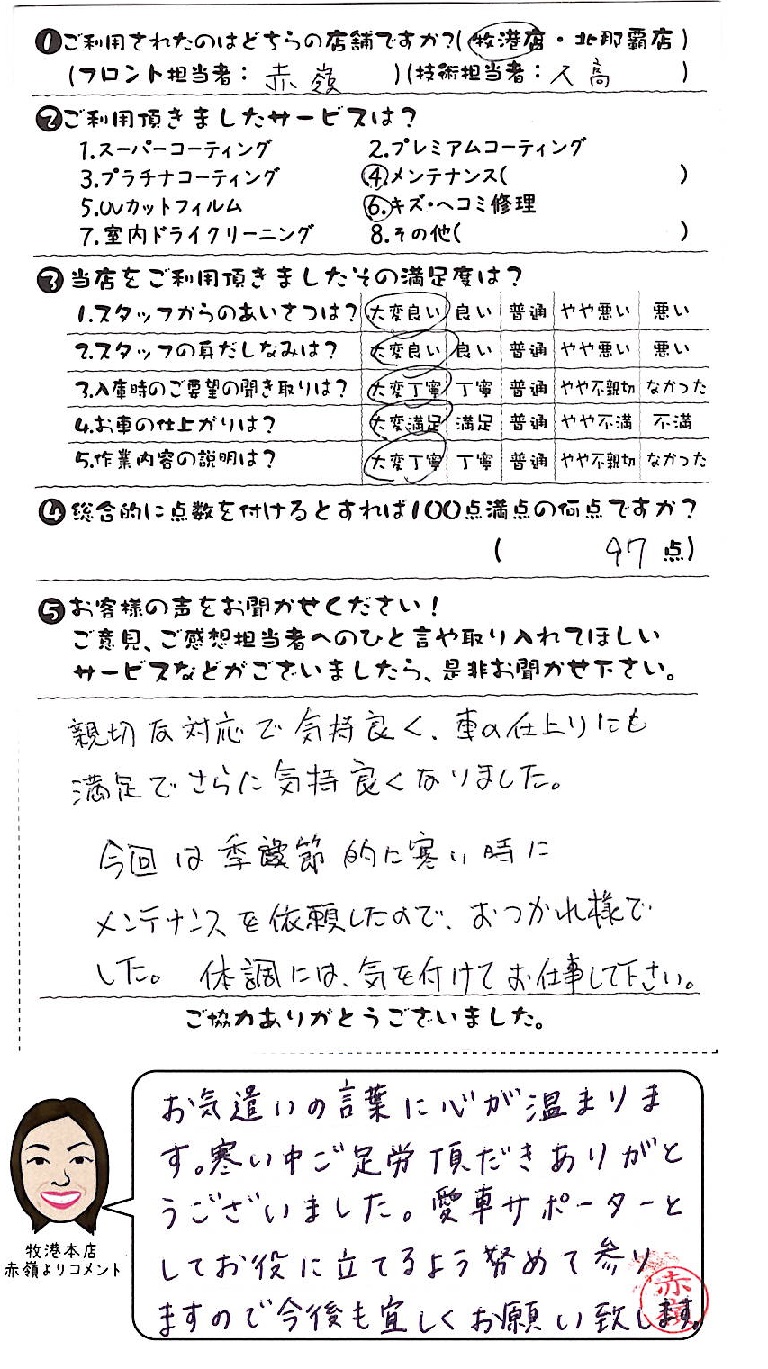 ❶ご利用されたのはどちらの店舗ですか?(牧港店・北那覇店)
(フロント担当者:赤嶺)(技術担当者:人高)
❷ご利用頂きましたサービスは?
1.スーパーコーティング 2.プレミアムコーティング
3.プラチナコーティング ④.メンテナンス( )
5.UVカットフィルム ⑥.キズ・ヘコミ修理
7.室内ドライクリーニング 8.その他( )
❸当店をご利用頂きましたその満足度は?
1.スタッフからのあいさつは? 大変良い 良い 普通 やや悪い 悪い
2.スタッフの身だしなみは? 大変良い 良い 普通 やや悪い 悪い
3.入庫時のご要望の聞き取りは? 大変丁寧 丁寧 普通 やや不親切 なかった
4.お車の仕上がりは? 大変満足 満足 普通 やや不満 不満
5.作業内容の説明は? 大変丁寧 丁寧 普通 やや不親切 なかった
❹総合的に点数を付けるとすれば100点満点の何点ですか?
(97点)
❺お客様の声をお聞かせください!
ご意見、ご感想担当者へのひと言や取り入れてほしい
サービスなどがございましたら、是非お聞かせ下さい。
親切な対応で気持良く、車の仕上りにも
満足でさらに気持良くなりました。
今回は季節的に寒い時に
メンテナンスを依頼したので、おつかれ様で
した。体調には、気を付けてお仕事して下さい。
ご協力ありがとうございました。
お気遣いの言葉に心が温まりま
す。寒い中ご足労頂だきありがと
うございました。愛車サポーターと
してお役に立てるよう努めて参り
ますので今後も宜しくお願い致します。
赤嶺
牧港本店
赤嶺よりコメント